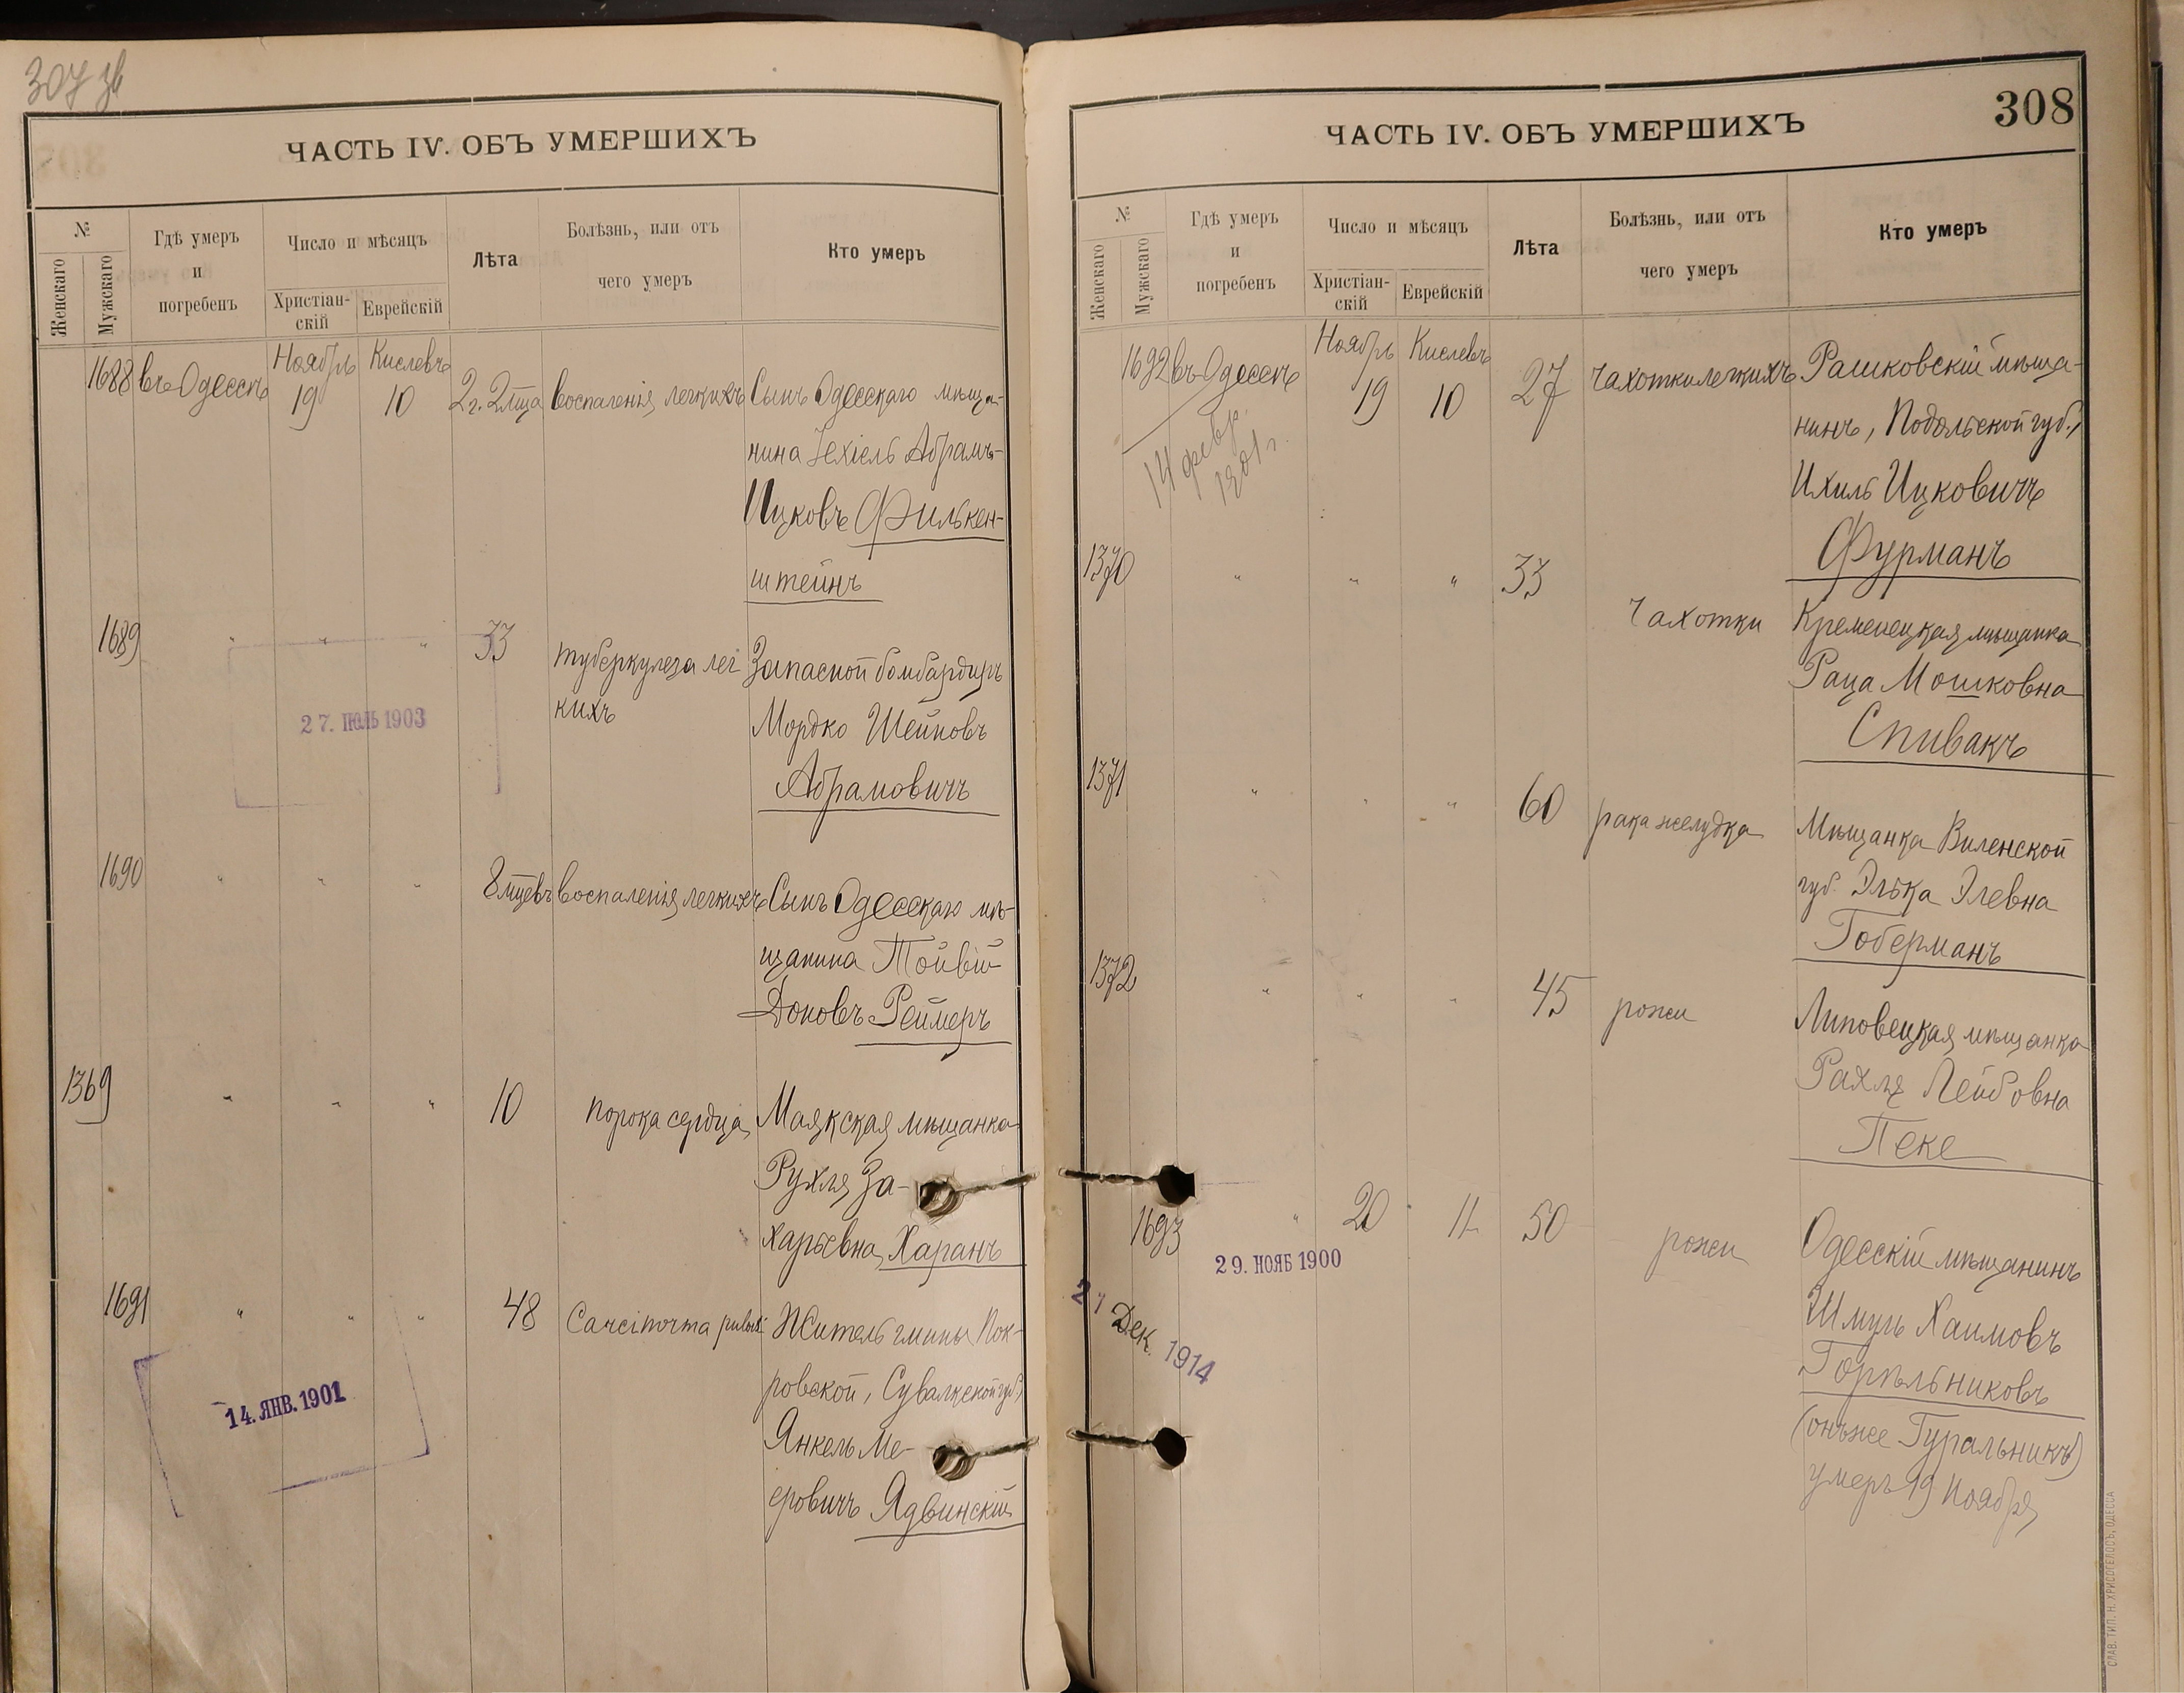 307 зв
ЧАСТЬ IV. ОБЪ УМЕРШИХЪ
№
Женскаго
Мужскаго
Гдѣ умеръ
и
погребенъ
Число и мѣсяцъ
Христіан-
скій
Еврейскій
Лѣта
Болѣзнь, или отъ
чего умеръ
Кто умеръ
1688 въ Одессѣ Ноябрь 19 Кислевъ 10 2 г. 2 мца воспаленія легкихъ Сынъ Одесскаго мѣща-
нина Іехіель Абрамъ-
Ицковъ Филькен-
штейнъ
1689 " " " 33 туберкулеза лег Запасной бомбардиръ
кихъ Мордко Шейновъ
Абрамовичъ
27. ІЮЛЬ 1903
1690 " " " 8 мцевъ воспаленія легкихъ Сынъ Одесскаго мѣ-
щанина Тойвій
Доновъ Реймеръ
1369 " " " 10 порока сердца Маякская мѣщанка
Рухля За-
харьевна Харанъ
1691 " " " 48 Carcinoma Житель гмины Пок-
ровской, Сувалкской губ,
Янкель Ме-
еровичъ Ядвинскій
14. ЯНВ. 1901
308
ЧАСТЬ IV. ОБЪ УМЕРШИХЪ
№
Женскаго
Мужскаго
Гдѣ умеръ
и
погребенъ
Число и мѣсяцъ
Христіан-
скій
Еврейскій
Лѣта
Болѣзнь, или отъ
чего умеръ
Кто умеръ
1692 въ Одессѣ Ноябрь 19 Кислевъ 10 27 чахотки легкихъ Рашковскій мѣща-
нинъ, Подольской губ.,
Ихиль Ицковичъ
Фурманъ
14 февр.
1901 г.
1370 " " " 33 чахотки Кременецкая мѣщанка
Раца Мошковна
Спивакъ
1371 " " " 60 рака желудка Мѣщанка Виленской
губ. Элька Элевна
Гоберманъ
1372 " " " 45 рожи Липовецкая мѣщанка
Рахля Лейбовна
Пеке
1693 " 20 11 50 рожи Одесскій мѣщанинъ
Шмуль Хаимовъ
Горѣльниковъ
(онъ же Гуральникъ)
умеръ 19 Ноября
29. НОЯБ 1900
21 Дек. 1914
СЛАВ. ТИП. Н. ХРИСОГЕЛОСЪ, ОДЕССА